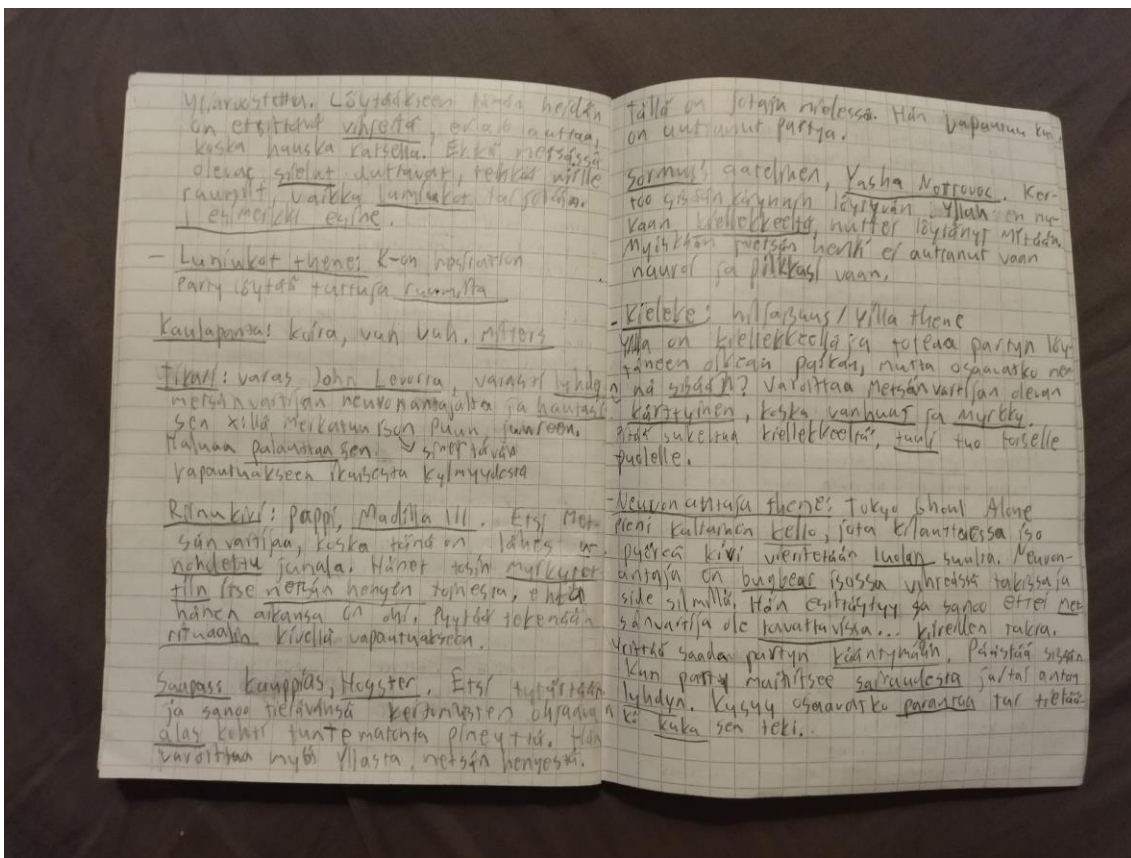 yliarvostettu. Löytääkseen hänen heidän
on etsittävä vihjeitä, ei auttaa,
koska hauska katsella. Ehkä metsässä
olevat sielut auttavat, tehkää niille
raunsilt, vaikka lumiukot tai jotain.
1 esimerkki esine.
- Lumiukot theme: K-on
Party löytää tuttuja ruumiita
Kaulapanta: koira, vuh vuh. Mitters
Tikari: varas John Levorra, varasti lyhdyn
metsänvartijan neuvonantajalta ja hautasi
sen xillä merkatun ison puun juureen.
Haluaa palauttaa sen.
vapautuakseen ikuisesta kylmyydestä
Riimukivi: pappi, Madilla III. Etsi Met-
sänvartijaa, koska tämä on lähes u-
nohdettu jumala. Hänet tosin myrkytet-
tiin itse metsän hengen toimesta, ehkä
hänen aikansa on ohi. Pyytää tekemään
rituaalin kivellä vapautuakseen.
Saapas: kauppias, Hogster. Etsi tytärtään
ja sanoo tietävänsä kertomusten ohjaavan
alas kohti tuntematonta pimeyttä. Hän
varoittaa myös Yllasta, metsän hengestä.
Tällä on jotain mielessä. Hän vapautuu kun
on auttanut partya.
Sormus: gatelinen, Yasha Notrovoc. Ker-
too sisään käynnin löytyvän Yllan en mu-
kaan kiellekkeeltä, mutter löytänyt mitään.
Myöskään metsän henki ei auttanut vaan
nauroi ja pilkkasi vaan.
- Kieleke: hiljaisuus / Ylla theme
Ylla on kiellekkeellä ja toteaa partyn löy-
täneen oikean paikan, mutta osaavatko ne-
nä sisään? Varoittaa Metsänvartijan olevan
kärttyinen, koska vanhuus ja myrkky.
Pitää sukeltaa kiellekkeeltä, tuuli tuo toiselle
puolelle.
- Neuvonantaja theme: Tokyo Ghoul Alone
pieni kultainen kello, jota kilauttaessa iso
pyöreä kivi vieritetään luolan suulta. Neuvon-
antaja on bugbear isossa vihreässä takissa ja
side silmillä. Hän esittäytyy ja sanoo ettei Met-
sänvartija ole tavattavissa... kiireiden takia.
Yrittää saada partyn kääntymään. Päästää sisään
kun party mainitsee sairaudesta ja/tai anton
lyhdyn. Kysyy osaavatko parantaa tai tietää-
kö kuka sen teki..